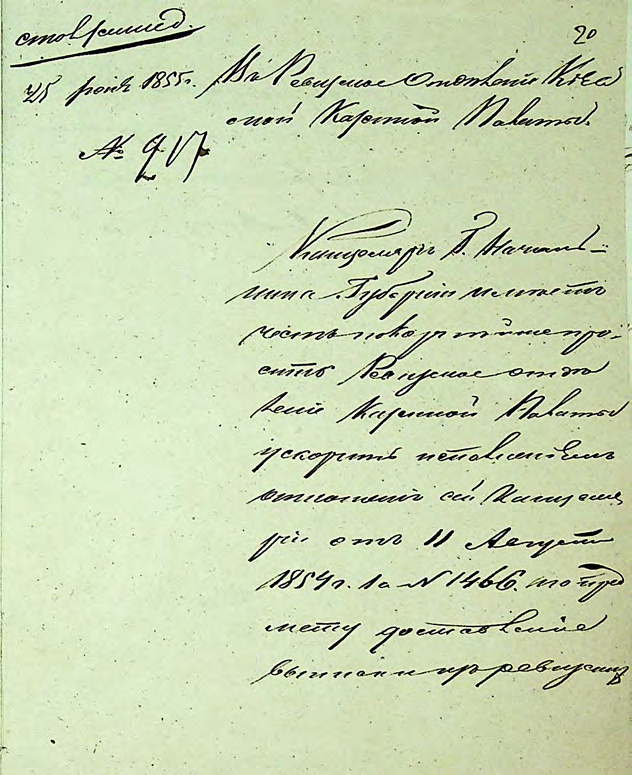 20
25 1855 г. Въ Ревизское Отдѣленіе Кіев
ской Казенной Палаты.
№
Канцелярія Г. Началь-
ника Губерніи имѣетъ
честь покорнѣйше про-
сить Ревизское отдѣ
леніе Казенной Палаты
ускорить исполненіемъ
отношенія сей Канцеля
ріи отъ 11 Августа
1854 г. за № 1466. по пред
мету доставленія
выписки изъ ревизскихъ